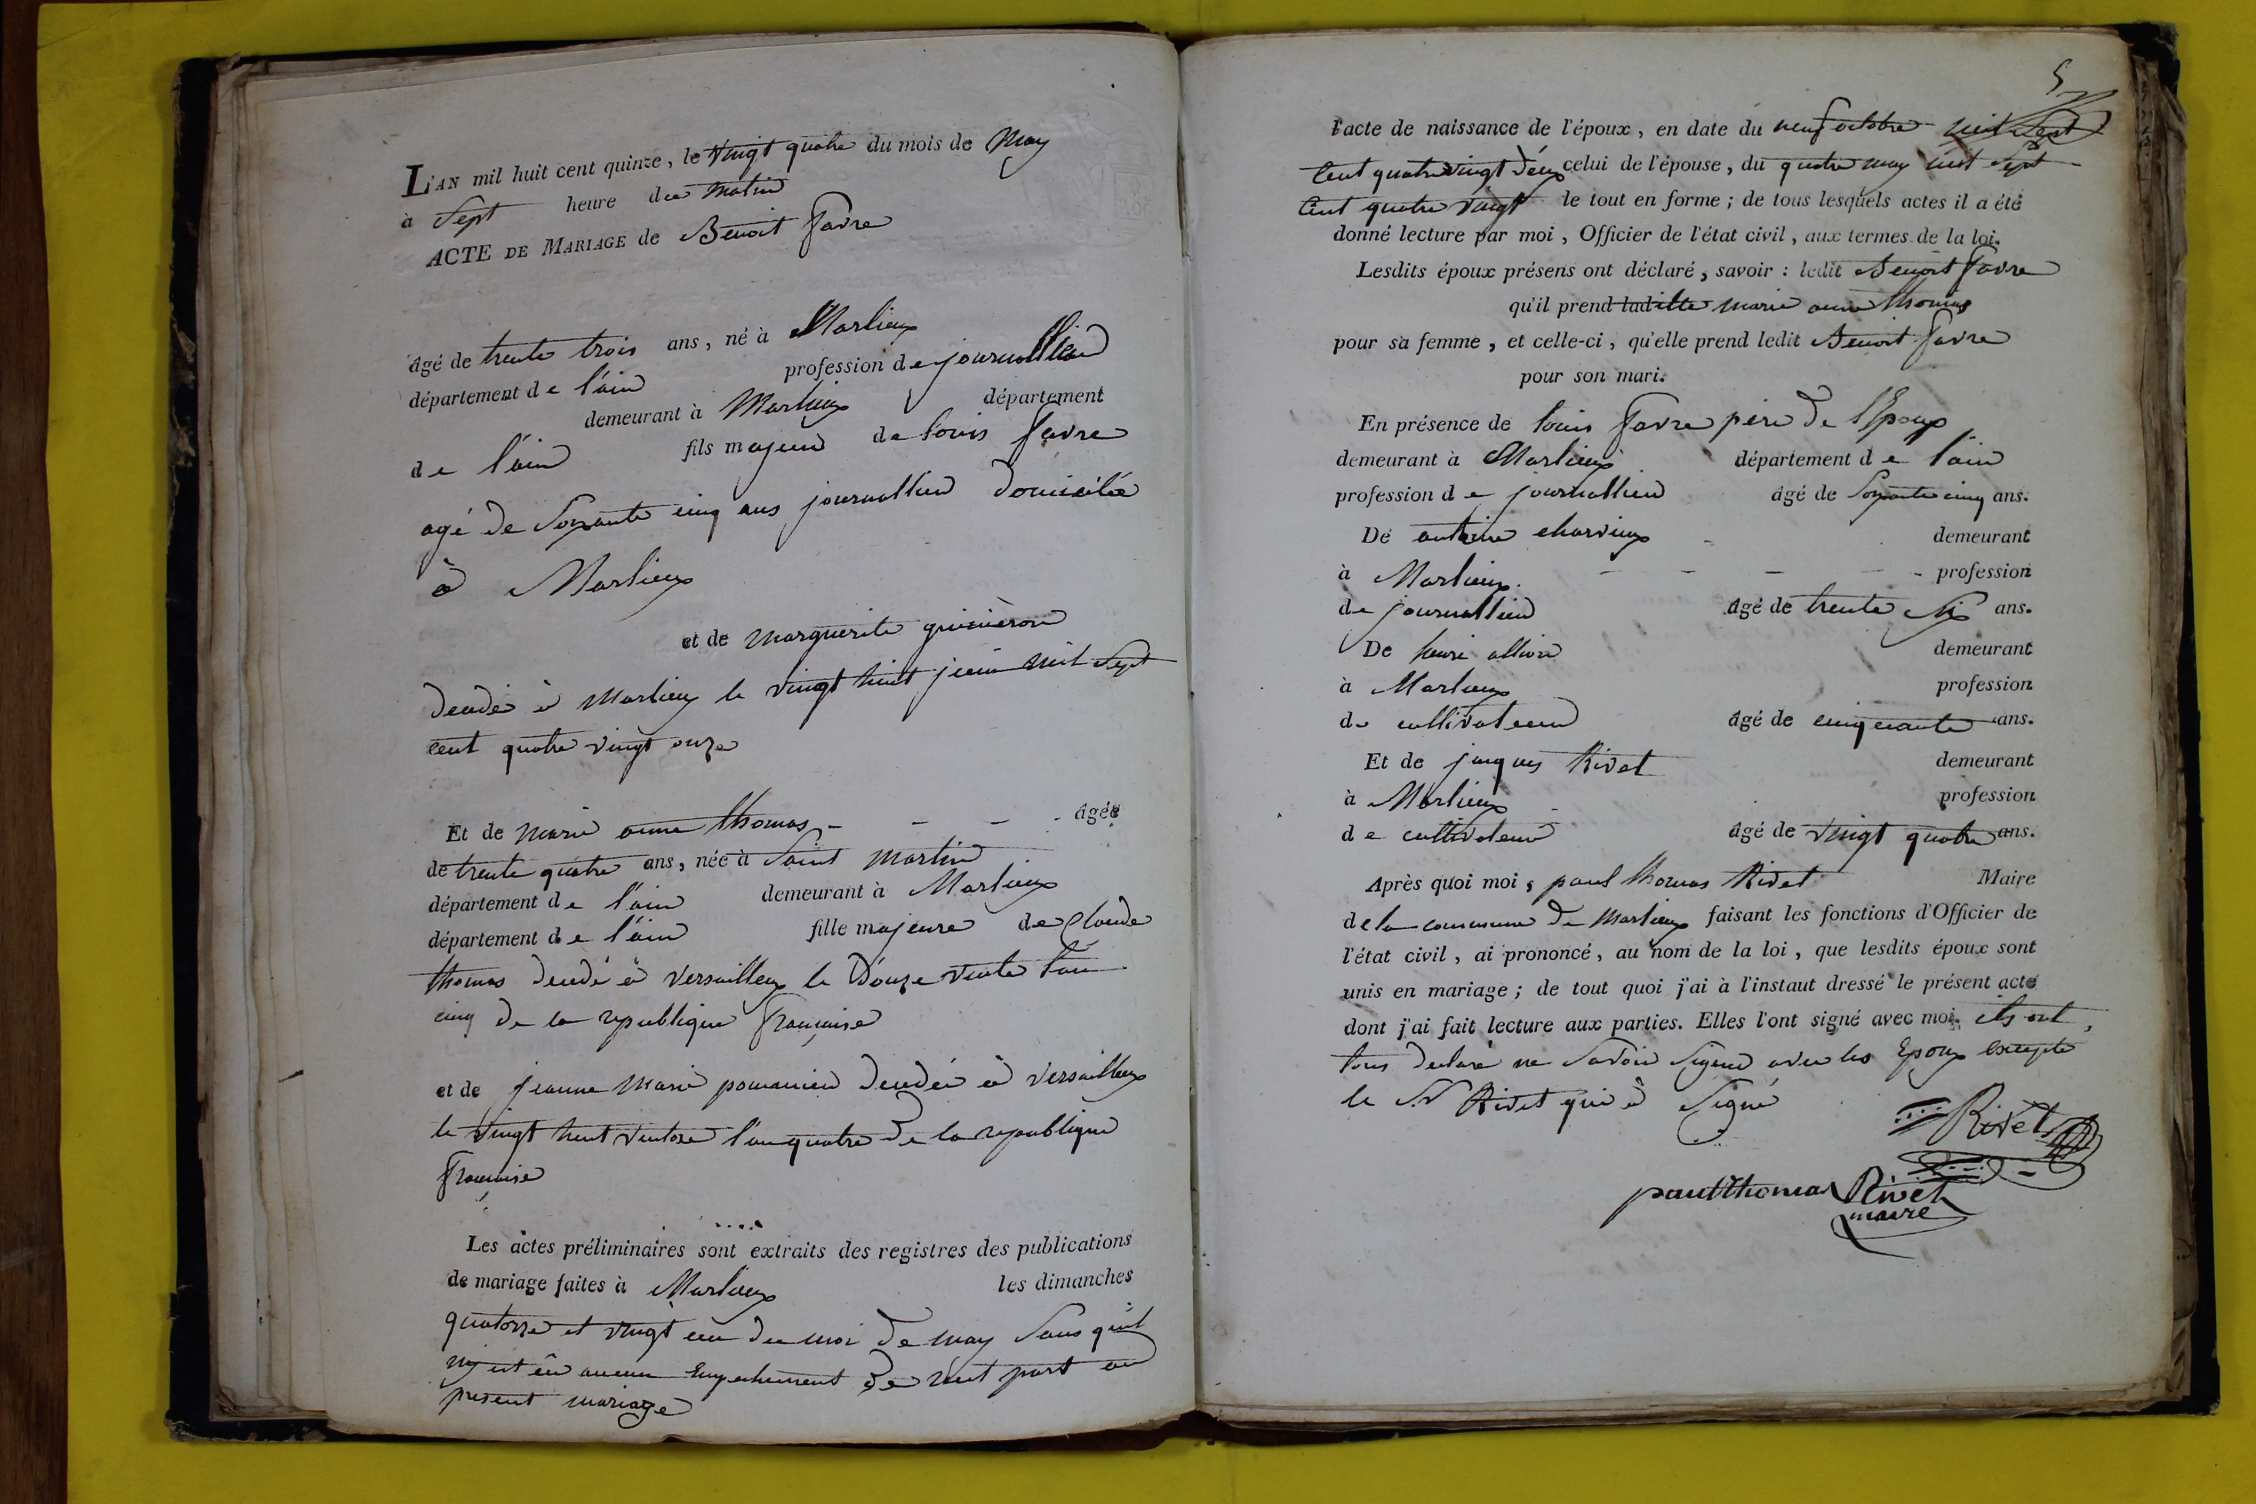 L'AN mil huit cent quinze, le vingt quatre du mois de may
à sept heure du matin
ACTE DE MARIAGE de Benoit favre
âgé de trente trois ans, né à Marlieux
département de l'ain profession de journallier
demeurant à Marlieux département
de l'ain fils majeur de louis favre
agé de soixante cinq ans journallier domicilié
à Marlieux
et de marguerite
decedé à Marlieux le vingt huit juin mil sept
cent quatre vingt onze
Et de marie anne thomas - - - - âgée
de trente quatre ans, née à saint martin
département de l'ain demeurant à Marlieux
département de l'ain fille majeure de Claude
thomas decedé à versailleux le douze ventose l'an
cinq de la republique française
et de jeanne marie decedée à versailleux
le vingt huit ventose l'an quatre de la republique
française
Les actes préliminaires sont extraits des registres des publications
de mariage faites à Marlieux les dimanches
quatorze et vingt un du moi de may sans quil
ny ut eu aucun empechement de nut part au
present mariage
5
l'acte de naissance de l'époux, en date du neuf octobre mil sept
cent quatre vingt deux celui de l'épouse, du quatre may mil sept
cent quatre vingt le tout en forme ; de tous lesquels actes il a été
donné lecture par moi, Officier de l'état civil, aux termes de la loi.
Lesdits époux présens ont déclaré, savoir : ledit Benoit favre
qu'il prend laditte marie anne thomas
pour sa femme, et celle-ci, qu'elle prend ledit Benoit favre
pour son mari.
En présence de louis favre père de l'Epoux
demeurant à Marlieux département de l'ain
profession de journallier âgé de soixante cinq ans.
De antoine charvieux demeurant
à Marlieux - - - - - profession
de journallier âgé de trente six ans.
De henri demeurant
à Marlieux profession
de cultivateur âgé de cinquante ans.
Et de jaques Rivet demeurant
à Marlieux profession
de cultivateur âgé de vingt quatre ans.
Après quoi moi, paul thomas Rivet Maire
de la commune de Marlieux faisant les fonctions d'Officier de
l'état civil, ai prononcé, au nom de la loi, que lesdits époux sont
unis en mariage ; de tout quoi j'ai à l'instaut dressé le présent acte
dont j'ai fait lecture aux parties. Elles l'ont signé avec moi, ils ont
tous declaré ne savoir signer avec les Epoux excepté
le Sr Rivet qui à signé
Rivet
paul thomas Rivet
maire